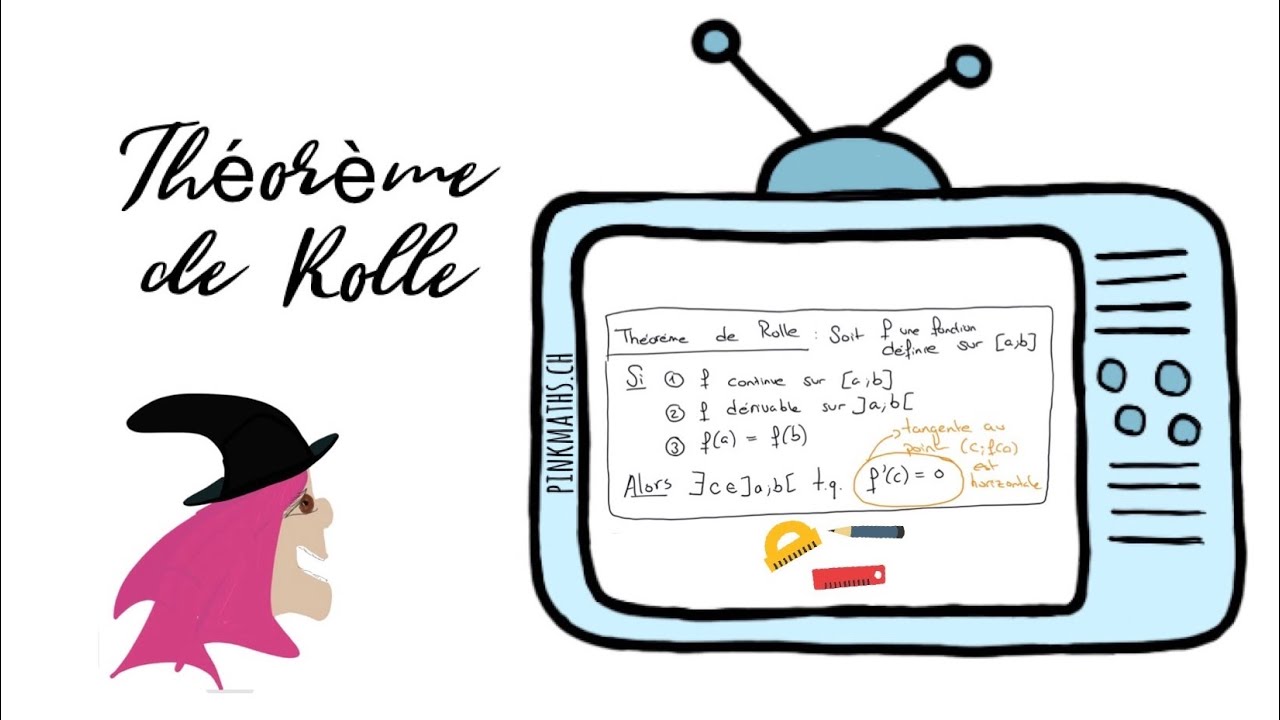 Théorème
de Rolle
PINKMATHS.CH
Théorème de Rolle : Soit f une fonction
définie sur [a;b]
Si ① f continue sur [a;b]
② f dérivable sur ]a;b[
③ f(a) = f(b)
Alors ∃ c ∈ ]a;b[ t.q. f'(c) = 0
tangente au
point (c;f(c))
est
horizontale